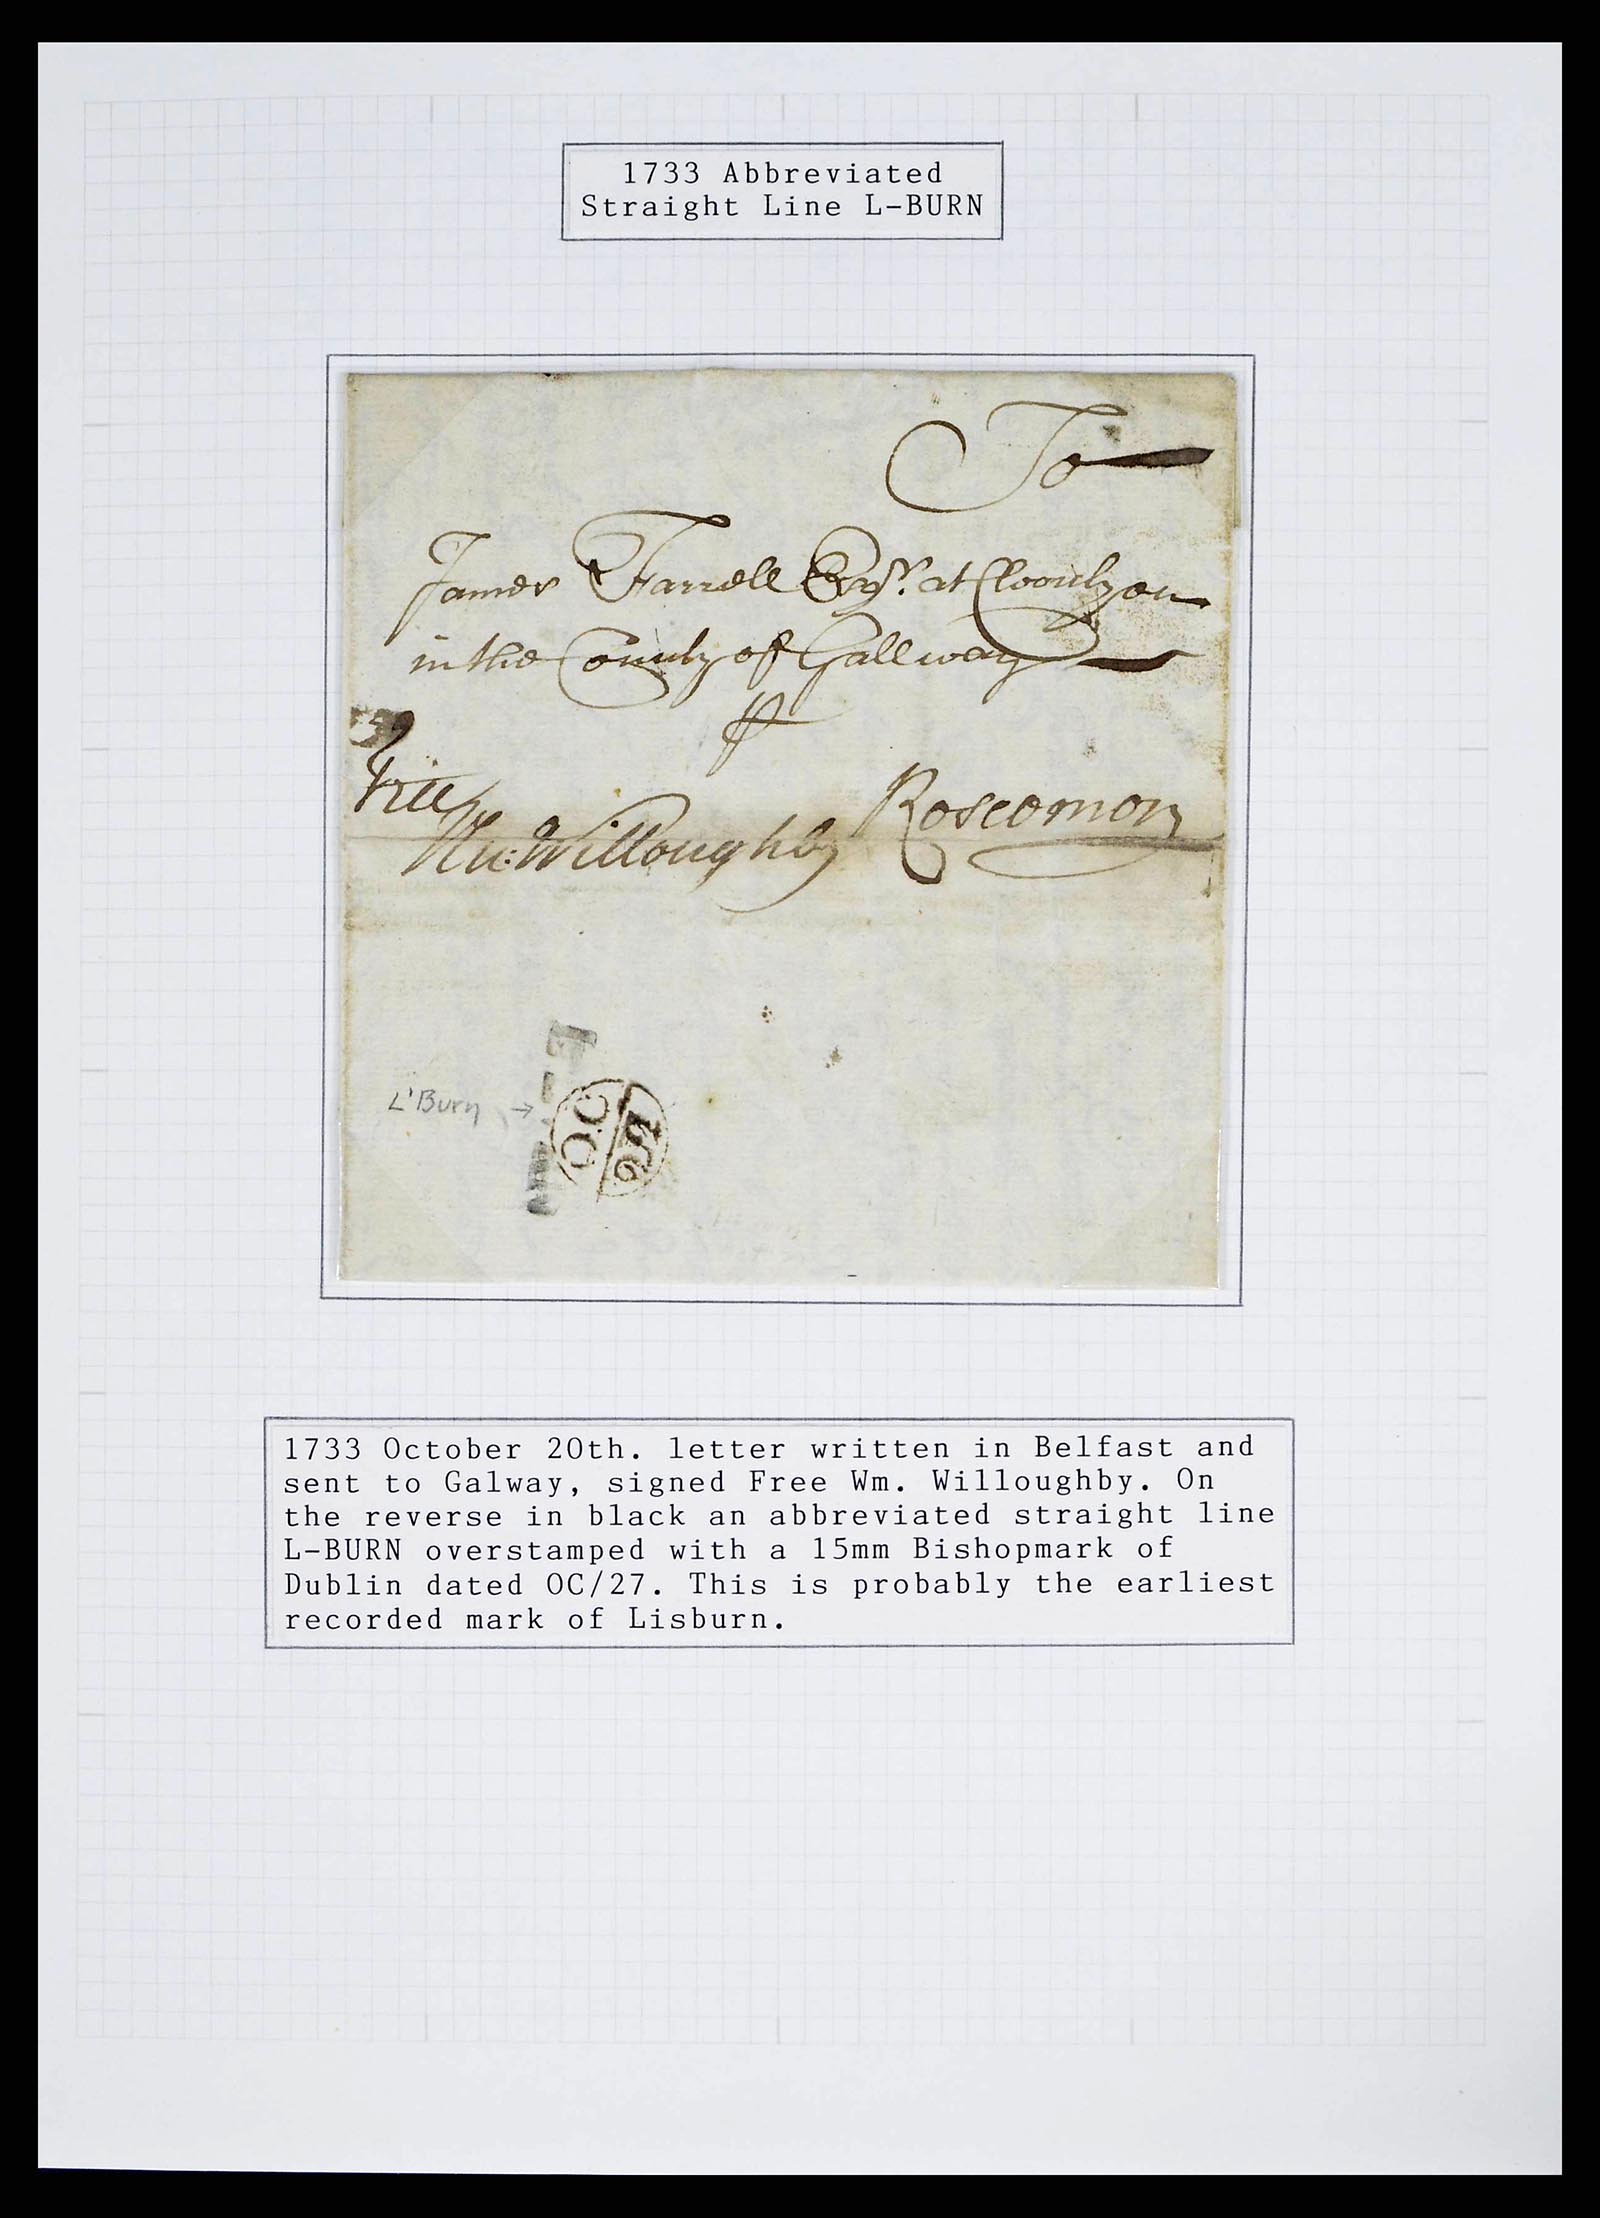 1733 Abbreviated
Straight Line L-BURN
To
James Farrell Esqr. at Cloonlyon
in the County of Gallway
Free
Wm: Willoughby
Roscomon
L'Burn →
OC
27
1733 October 20th. letter written in Belfast and
sent to Galway, signed Free Wm. Willoughby. On
the reverse in black an abbreviated straight line
L-BURN overstamped with a 15mm Bishopmark of
Dublin dated OC/27. This is probably the earliest
recorded mark of Lisburn.